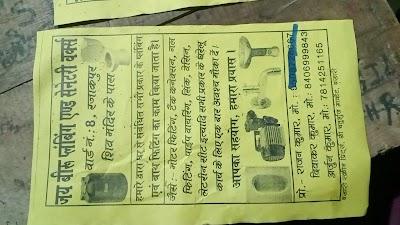 जय बीरू प्लंबिंग एण्ड सेनेटरी वर्क्स
वार्ड नं.: 8, इनाकपुर
शिव मंदिर के पास
हमारे द्वारा घर से संबंधित सभी प्रकार के प्लंबिंग
एवं बाथ फिटिंग का काम किया जाता है।
जैसे :- मीटर फिटिंग, टैंक कनेक्सन, नल
फिटिंग, पाईप वायरिंग, सिंक, बेसिन,
लेटरीन सीट इत्यादि सभी प्रकार के घरेलू
कार्य के लिए एक बार अवश्य मौका दें।
आपका सहयोग, हमारा प्रयास।
प्रो.- राजन कुमार, मो.:
दिवाकर कुमार, मो.: 8406999843
अर्जुन कुमार, मो.: 7814251165